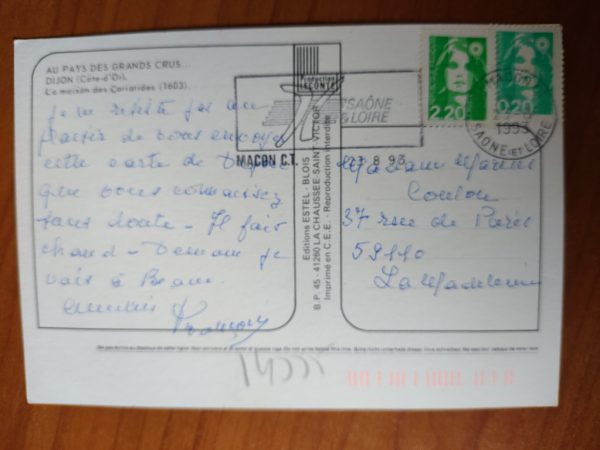 AU PAYS DES GRANDS CRUS...
DIJON (Côte-d'Or).
La maison des Cariatides (1603).
je ne résiste pas au
plaisir de vous envoyer
cette carte de Dijon
que vous connaissez
sans doute - Il fait
chaud - Demain je
vais à Beaune
Amitiés
François
Editions ESTEL - BLOIS
B.P. 45 - 41260 LA CHAUSSEE-SAINT-VICTOR
Imprimé en C.E.E. - Reproduction interdite
SAÔNE
& LOIRE
MACON C.T.
23 8 93
2,20
0,20
MACON
1993
SAONE-ET-LOIRE
Madame
Coulon
37 rue de Paris
59110
La Madeleine